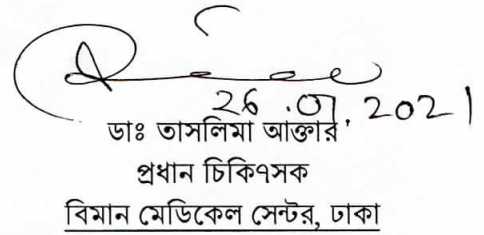 26.07.2021
ডাঃ তাসলিমা আক্তার
প্রধান চিকিৎসক
বিমান মেডিকেল সেন্টার, ঢাকা